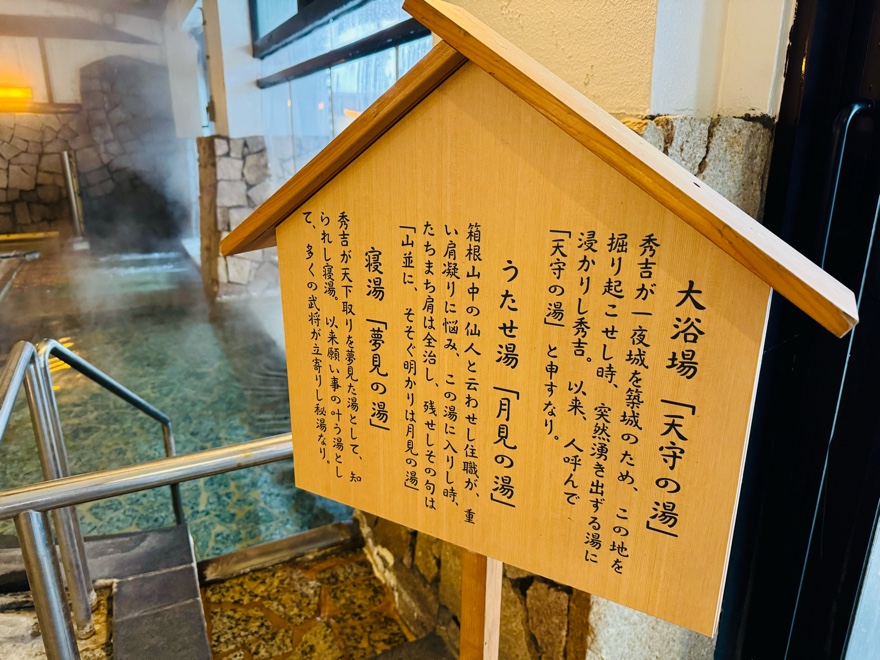 大浴場「天守の湯」
秀吉が一夜城を築城のため、この地を
掘り起こせし時、突然湧き出ずる湯に
浸かりし秀吉。以来、人呼んで
「天守の湯」と申すなり。
うたせ湯「月見の湯」
箱根山中の仙人と云わせし住職が、重
い肩凝りに悩み、この湯に入りし時、
たちまち肩は全治し、残せしその句は
「山並に、そそぐ明かりは月見の湯」
寝湯「夢見の湯」
秀吉が天下取りを夢見た湯として、知
られし寝湯。以来願い事の叶う湯とし
て、多くの武将が立寄りし秘湯なり。